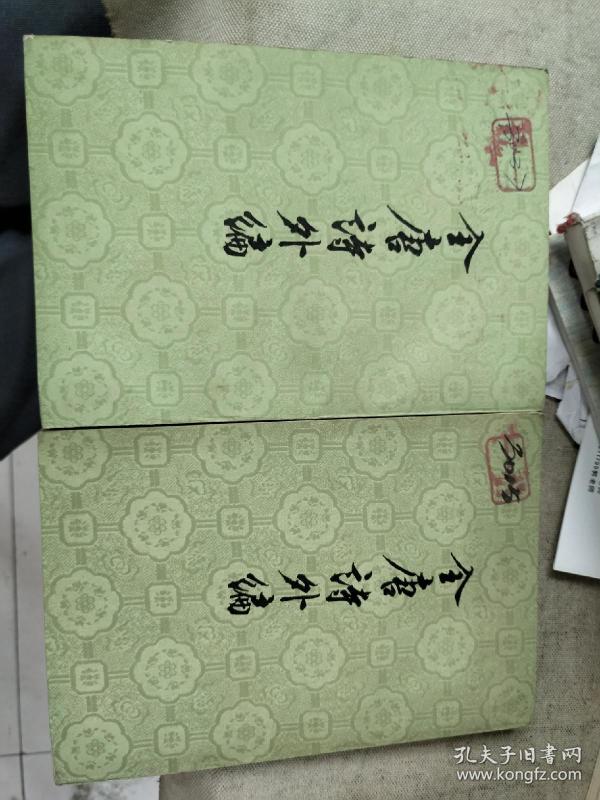 全唐诗外编
全唐诗外编
孔夫子旧書网
www.kongfz.com